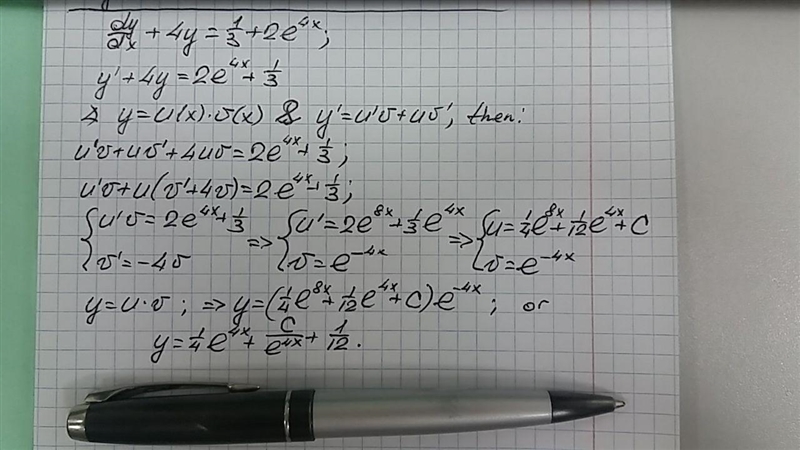 dy/dx + 4y = 1/3 + 2e^{4x};
y' + 4y = 2e^{4x} + 1/3
y = u(x)·v(x) & y' = u'v + uv', then:
u'v + uv' + 4uv = 2e^{4x} + 1/3;
u'v + u(v' + 4v) = 2e^{4x} + 1/3;
{ u'v = 2e^{4x} + 1/3 => { u' = 2e^{8x} + 1/3 e^{4x} => { u = 1/4 e^{8x} + 1/12 e^{4x} + C
{ v' = -4v { v = e^{-4x} { v = e^{-4x}
y = u·v ; => y = (1/4 e^{8x} + 1/12 e^{4x} + C)·e^{-4x} ; or
y = 1/4 e^{4x} + C/e^{4x} + 1/12.